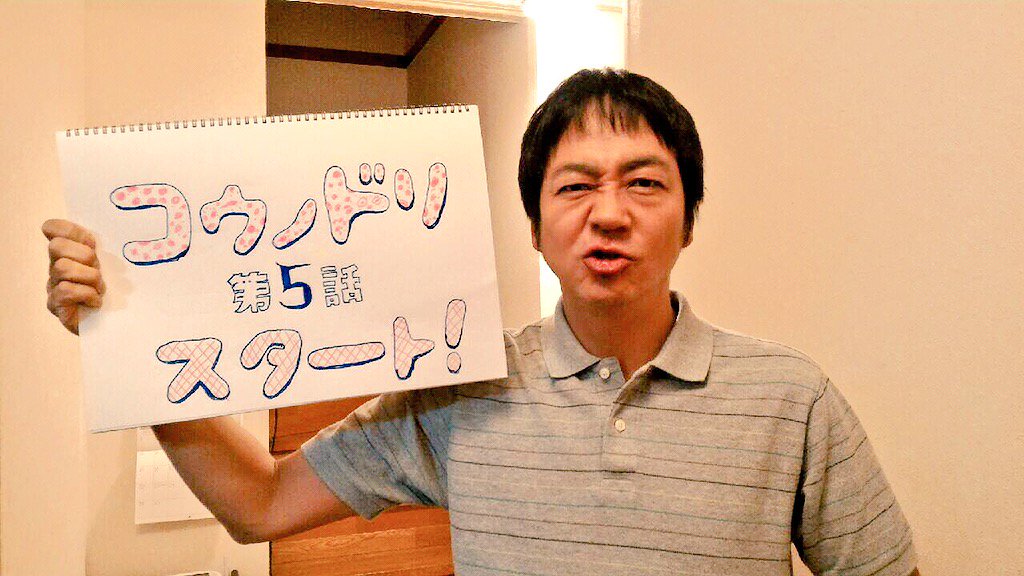 コウノドリ
第5話
スタート!